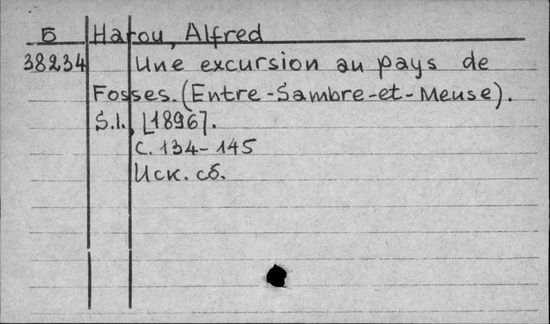 Б Harou, Alfred
38234 Une excursion au pays de
Fosses. (Entre-Sambre-et-Meuse).
S.l., [1896].
С. 134-145
Иск. сб.